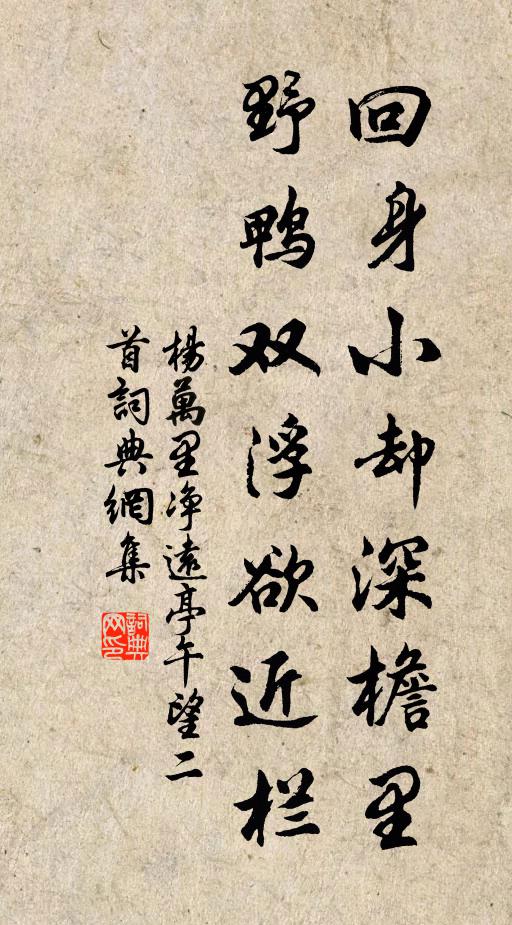 回身小却深檐里
野鸭双浮欲近栏
楊萬里净遠亭午望二
首詞典網集
詞典
网印